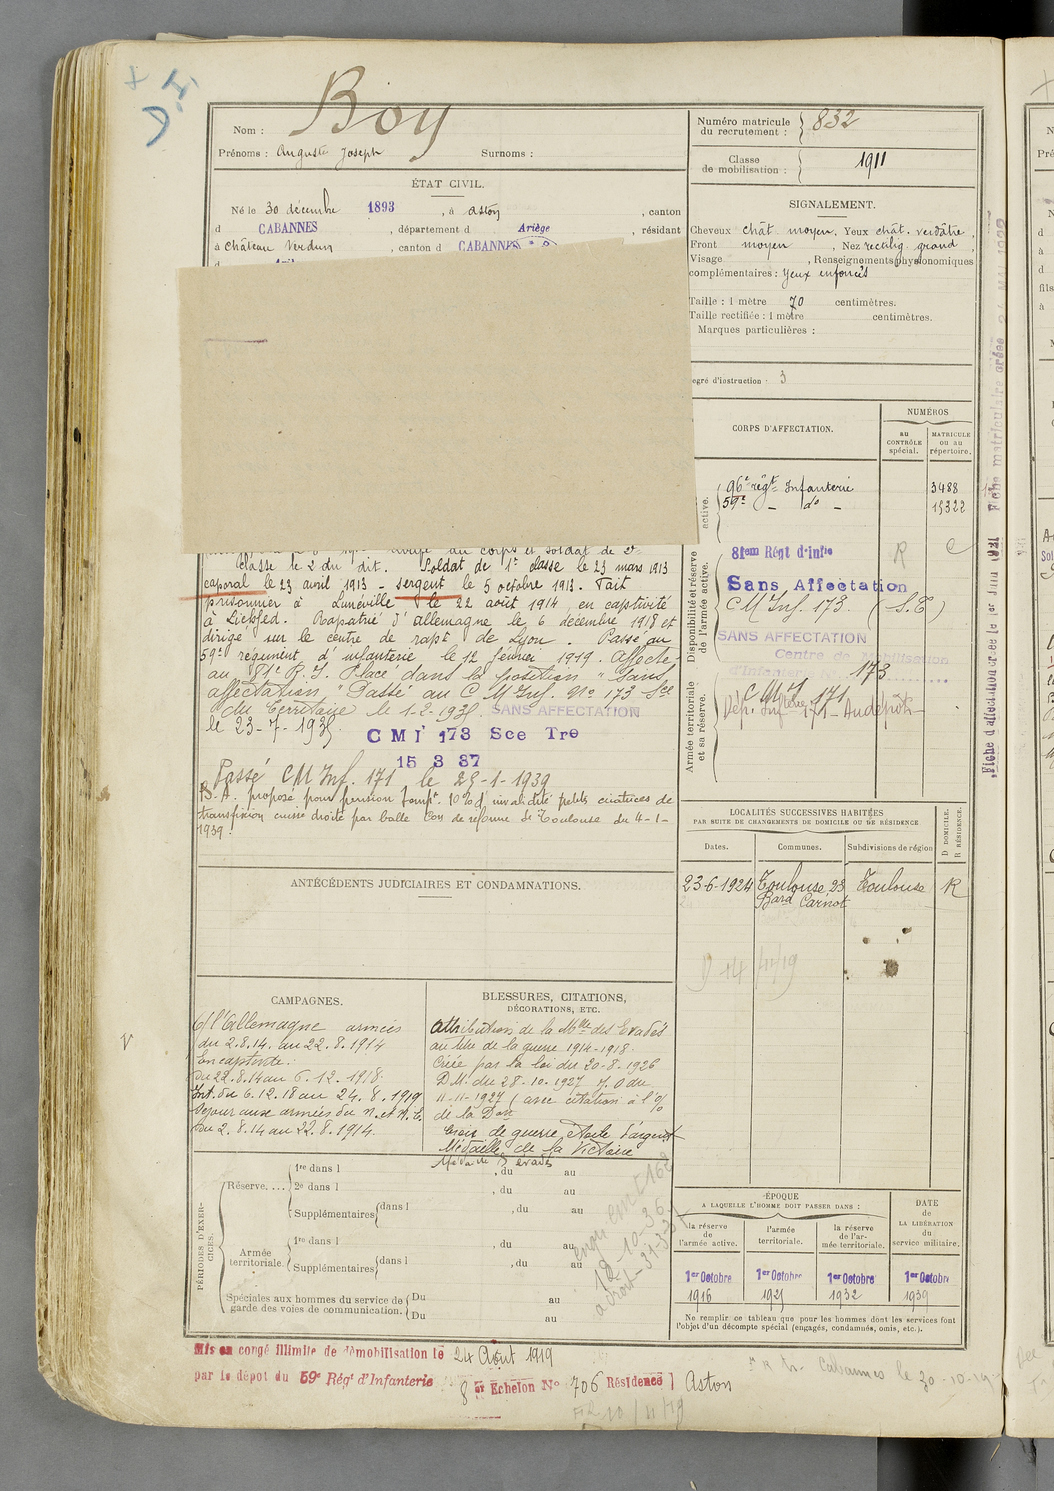 Boy
Nom :
Prénoms : Auguste Joseph Surnoms :
Numéro matricule
du recrutement : 832
Classe
de mobilisation : 1911
ÉTAT CIVIL.
Né le 30 décembre 1893, à Aston, canton
d CABANNES, département d Ariège, résidant
à Château Verdun, canton d CABANNES
SIGNALEMENT.
Cheveux chât. moyen. Yeux chât. verdâtre,
Front moyen, Nez rectilig. grand,
Visage , Renseignements physionomiques
complémentaires : yeux enfoncés
Taille : 1 mètre 70 centimètres.
Taille rectifiée : 1 mètre centimètres.
Marques particulières :
egré d'instruction : 3
CORPS D'AFFECTATION.
NUMÉROS
au
CONTRÔLE
spécial.
MATRICULE
ou au
répertoire.
active.
96e régt Infanterie 3488
59e - do - 15322
Disponibilité et réserve
de l'armée active.
81em Régt d'infie R
Sans Affectation
CM Inf. 173. (S.T)
SANS AFFECTATION
Centre de Mobilisation
d'Infanterie No 173
Armée territoriale
et sa réserve.
CMI 171
au corps et soldat de 2e
Classe le 2 du dit. Soldat de 1e classe le 23 mars 1913
caporal le 23 avril 1913 - sergent le 5 octobre 1913. Fait
prisonnier à Lunéville le 22 août 1914, en captivité
à Rapatrié d'Allemagne le 6 décembre 1918 et
dirigé sur le centre de rapt de Lyon. Passé au
59e régiment d'infanterie le 12 février 1919. Affecté
au 81e R.I. Placé dans la position "Sans
affectation" Passé au C M Inf. No 173 Sce
du Territoire le 1-2-193 SANS AFFECTATION
le 23-7-193
CMI 173 Sce Tre
15 3 37
Passé CM Inf. 171 le 25-1-1939
proposé pour pension tempre 10% d'invalidité petites cicatrices de
transfixion cuisse droite par balle Con de réforme de Toulouse du 4-1-
1939.
ANTÉCÉDENTS JUDICIAIRES ET CONDAMNATIONS.
LOCALITÉS SUCCESSIVES HABITÉES
PAR SUITE DE CHANGEMENTS DE DOMICILE OU DE RÉSIDENCE
D DOMICILE.
R RÉSIDENCE.
Dates. Communes. Subdivisions de région
23-6-1924 Toulouse 23 Toulouse R
Bard Carnot
CAMPAGNES.
C/ l'Allemagne armées
du 2.8.14. au 22.8.1914
En captivité :
du 22.8.14 au 6.12.1918
Int. du 6.12.18 au 24.8.1919
Séjour aux armées du N. et N.E.
du 2.8.14 au 22.8.1914.
BLESSURES, CITATIONS,
DÉCORATIONS, ETC.
Attribution de la Mlle des Evadés
au titre de la guerre 1914-1918.
Créée par la loi du 20-8-1926
D.M. du 28-10-1927 J.O du
11-11-1927 (avec citation à l'o/
de la Don
Croix de guerre étoile d'argent
Médaille de la Victoire
Médaille évadés
PÉRIODES D'EXERCICES.
Réserve. . . .
1re dans l , du au
2e dans l , du au
Supplémentaires dans l , du au
Armée
territoriale.
1re dans l , du au
Supplémentaires dans l , du au
Spéciales aux hommes du service de
garde des voies de communication.
Du au
Du au
ÉPOQUE
A LAQUELLE L'HOMME DOIT PASSER DANS :
la réserve
de
l'armée active.
l'armée
territoriale.
la réserve
de l'ar-
mée territoriale.
DATE
de
LA LIBÉRATION
du
service militaire.
1er Octobre 1er Octobre 1er Octobre 1er Octobre
1916 192 1932 1939
Ne remplir ce tableau que pour les hommes dont les services font
l'objet d'un décompte spécial (engagés, condamnés, omis, etc.).
Mis en congé illimité de démobilisation le 24 Août 1919
par le dépôt du 59e Régt d'Infanterie
8 Echelon No 706 Résidence Aston
Cabannes le 30-10-19